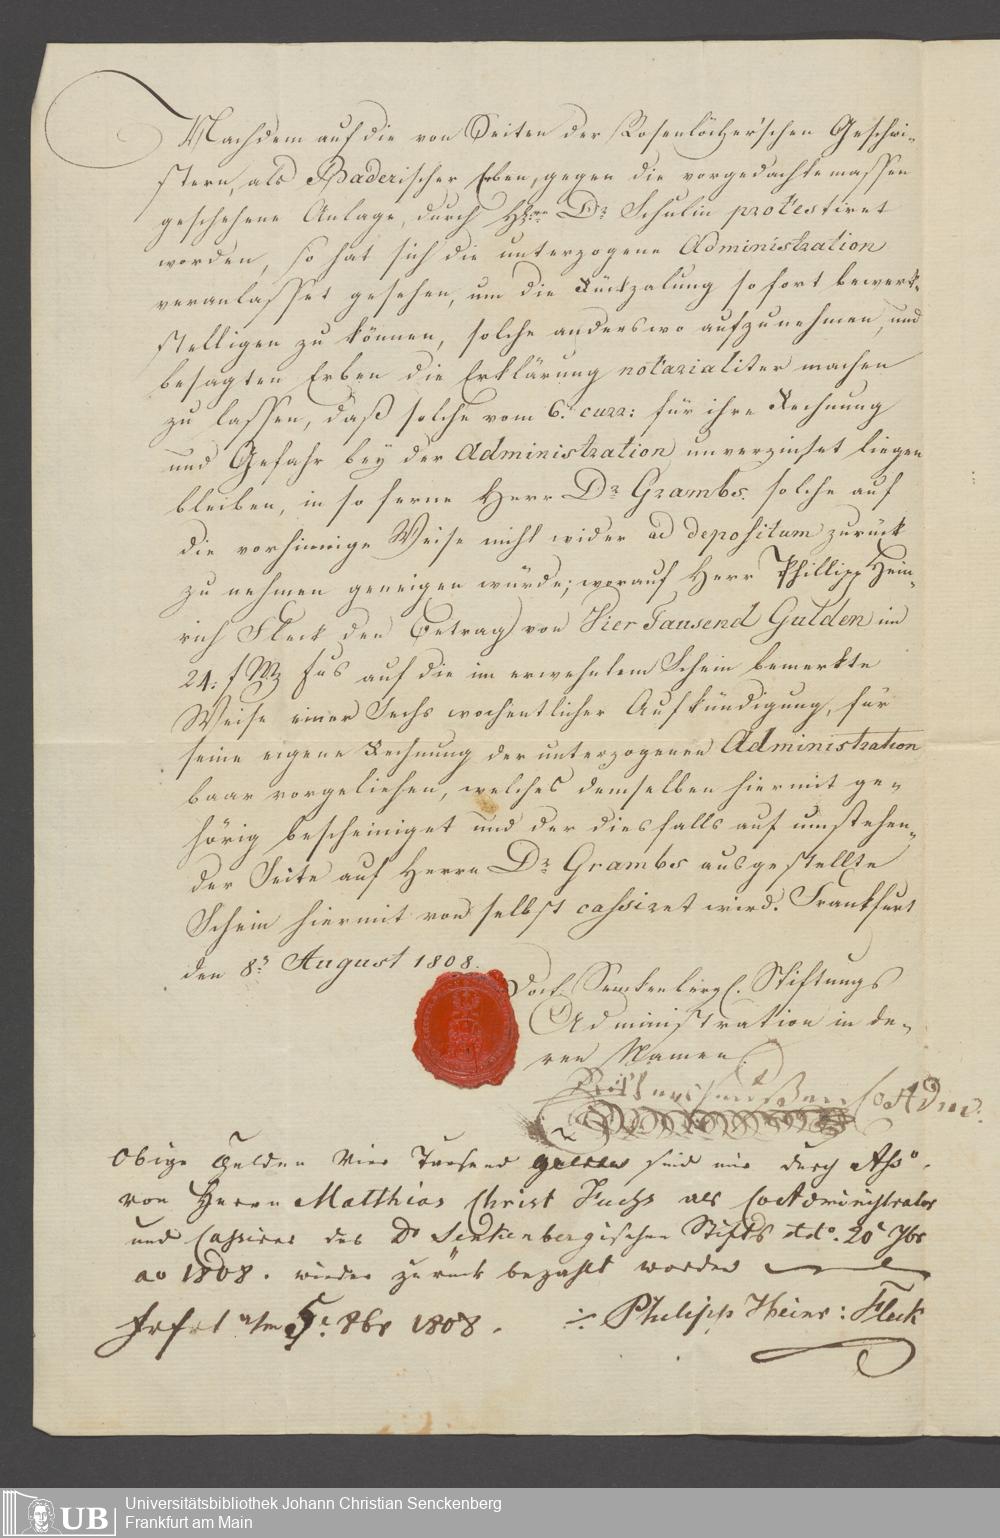 Nachdem auf die von Seiten der Rosenlöcher'schen Geschwi-
stern, als Baderischer Erben, gegen die vorgedachtermassen
geschehene Anlage, durch Hhrn Dr. Schulin protestiret
worden, so hat sich die unterzogene Administration
veranlasset gesehen, um die Rückzalung sofort bewerk-
stelligen zu können, solche anderswo aufzunehmen, und
besagten Erben die Erklärung notarialiter machen
zu lassen, daß solche vom 6. curr: für ihre Rechnung
und Gefahr bey der Administration unverzinset liegen
bleiben, in so ferne Herr Dr. Grambs. solche auf
die vorhinnige Weise nicht wider ad depositum zurück
zu nehmen geneigen würde; worauf Herr Phillipp Hein-
rich Fleck den Betrag von Vier Tausend Gulden im
24: f fus auf die im erwehntem Schein bemerkte
Weise einer Sechs wochentlicher Aufkündigung, für
seine eigene Rechnung der unterzogenen Administration
baar vorgeliehen, welches demselben hiermit ge-
hörig bescheiniget und der diesfalls auf umstehen-
der Seite auf Herrn Dr. Grambs ausgestellte
Schein hiermit von selbst cassiret wird. Frankfurt
den 8. August 1808.
Doct. Senckenbergl. Stiftungs
Administration in de-
ren Namen.
CoAdm.
Obige Gulden Vier Tausend sind mir durch
von Herrn Matthias Christ Fuchs als CoAdministrator
und Cassirer des Dr Senkenbergischen Stifts dto. 20 7br
ao 1808. wieder zurück bezahlt worden
Frfrt 8br 1808. Philipp Heinr: Fleck
UB
Universitätsbibliothek Johann Christian Senckenberg
Frankfurt am Main